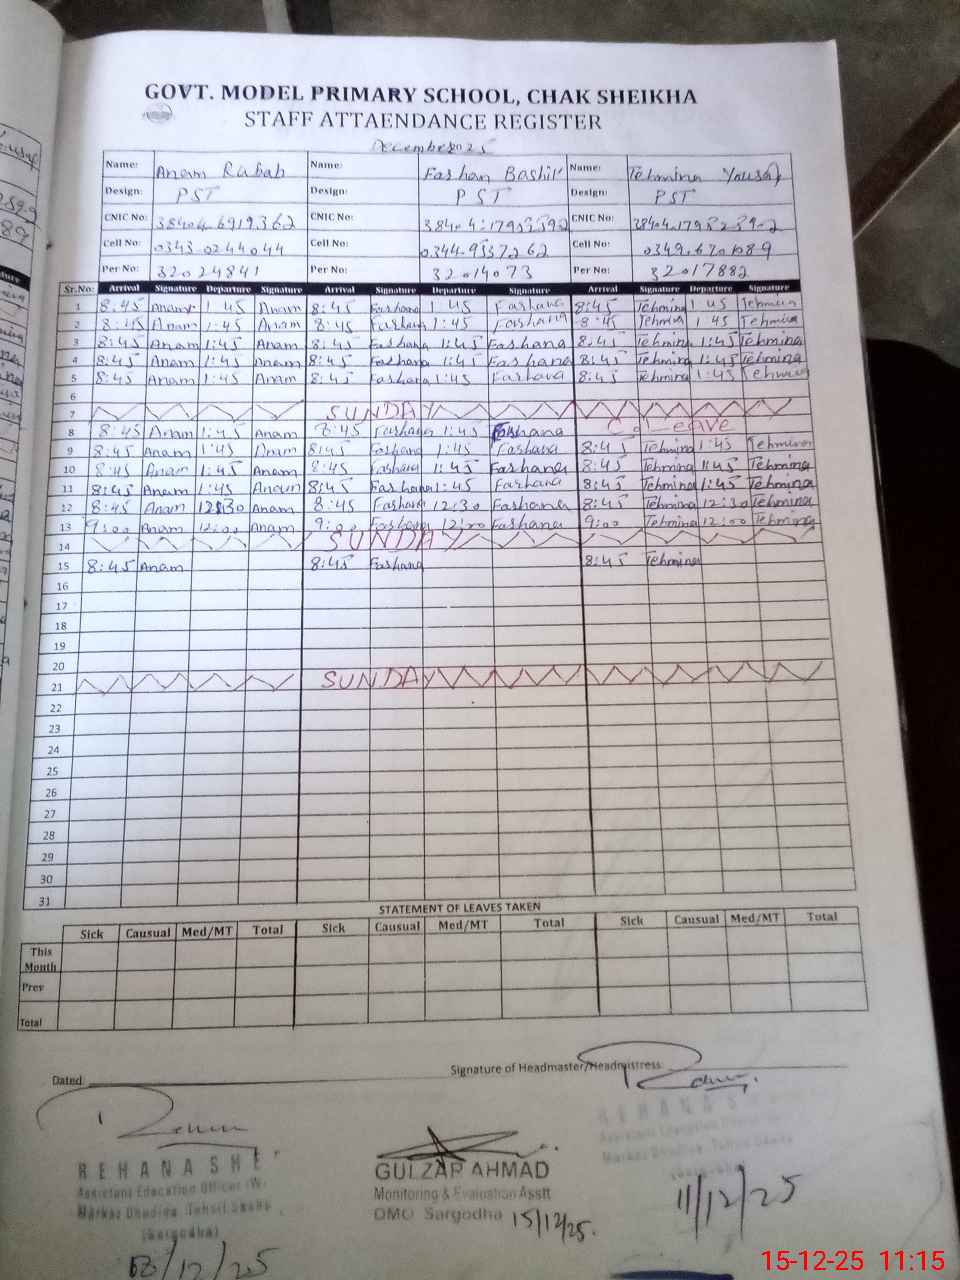 GOVT. MODEL PRIMARY SCHOOL, CHAK SHEIKHA
STAFF ATTAENDANCE REGISTER
December 2025
Name: Anam Rabab Name: Fashan Bashir Name: Tehmina Yousaf
Design: PST Design: PST Design: PST
CNIC No: 38404 6919362 CNIC No: CNIC No:
Cell No: 0343 0244044 Cell No: 0344.9557262 Cell No:
Per No: 32024841 Per No: 32014073 Per No: 32017882
Sr.No: Arrival Signature Departure Signature Arrival Signature Departure Signature Arrival Signature Departure Signature
1 8:45 Anam 1:45 Anam 8:45 Fashana 1:45 Fashana 8:45 Tehmina 1:45 Tehmina
2 8:45 Anam 1:45 Anam 8:45 Fashana 1:45 Fashana 8:45 Tehmina 1:45 Tehmina
3 8:45 Anam 1:45 Anam 8:45 Fashana 1:45 Fashana 8:45 Tehmina 1:45 Tehmina
4 8:45 Anam 1:45 Anam 8:45 Fashana 1:45 Fashana 8:45 Tehmina 1:45 Tehmina
5 8:45 Anam 1:45 Anam 8:45 Fashana 1:45 Fashana 8:45 Tehmina 1:45 Tehmina
6
7 SUNDAY
8 8:45 Anam 1:45 Anam 8:45 Fashana 1:45 Fashana C. Leave
9 8:45 Anam 1:45 Anam 8:45 Fashana 1:45 Fashana 8:45 Tehmina 1:45 Tehmina
10 8:45 Anam 1:45 Anam 8:45 Fashana 1:45 Fashana 8:45 Tehmina 1:45 Tehmina
11 8:45 Anam 1:45 Anam 8:45 Fashana 1:45 Fashana 8:45 Tehmina 1:45 Tehmina
12 8:45 Anam 12:30 Anam 8:45 Fashana 12:30 Fashana 8:45 Tehmina 12:30 Tehmina
13 9:00 Anam 12:00 Anam 9:00 Fashana 12:00 Fashana 9:00 Tehmina 12:00 Tehmina
14 SUNDAY
15 8:45 Anam 8:45 Fashana 8:45 Tehmina
16
17
18
19
20
21 SUNDAY
22
23
24
25
26
27
28
29
30
31
STATEMENT OF LEAVES TAKEN
Sick Causual Med/MT Total Sick Causual Med/MT Total Sick Causual Med/MT Total
This Month
Prev
Total
Dated Signature of Headmaster/Headmistress
REHANA SHE
Assistant Education Officer (W)
Markaz Dhudiea Tehsil
(Sargodha)
/12/25
GULZAR AHMAD
Monitoring & Evaluation Asstt
DMO Sargodha 15/12/25.
REHANA S
Assistant Education
11/12/25
15-12-25 11:15